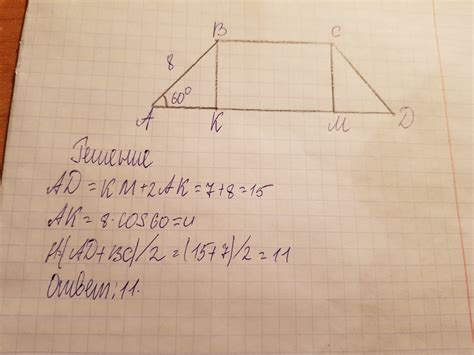 B C
8
60°
A K M D
Решение
AD = KM + 2AK = 7 + 8 = 15
AK = 8 · cos60 = 4
H(AD + BC)/2 = (15 + 7)/2 = 11
Ответ: 11.